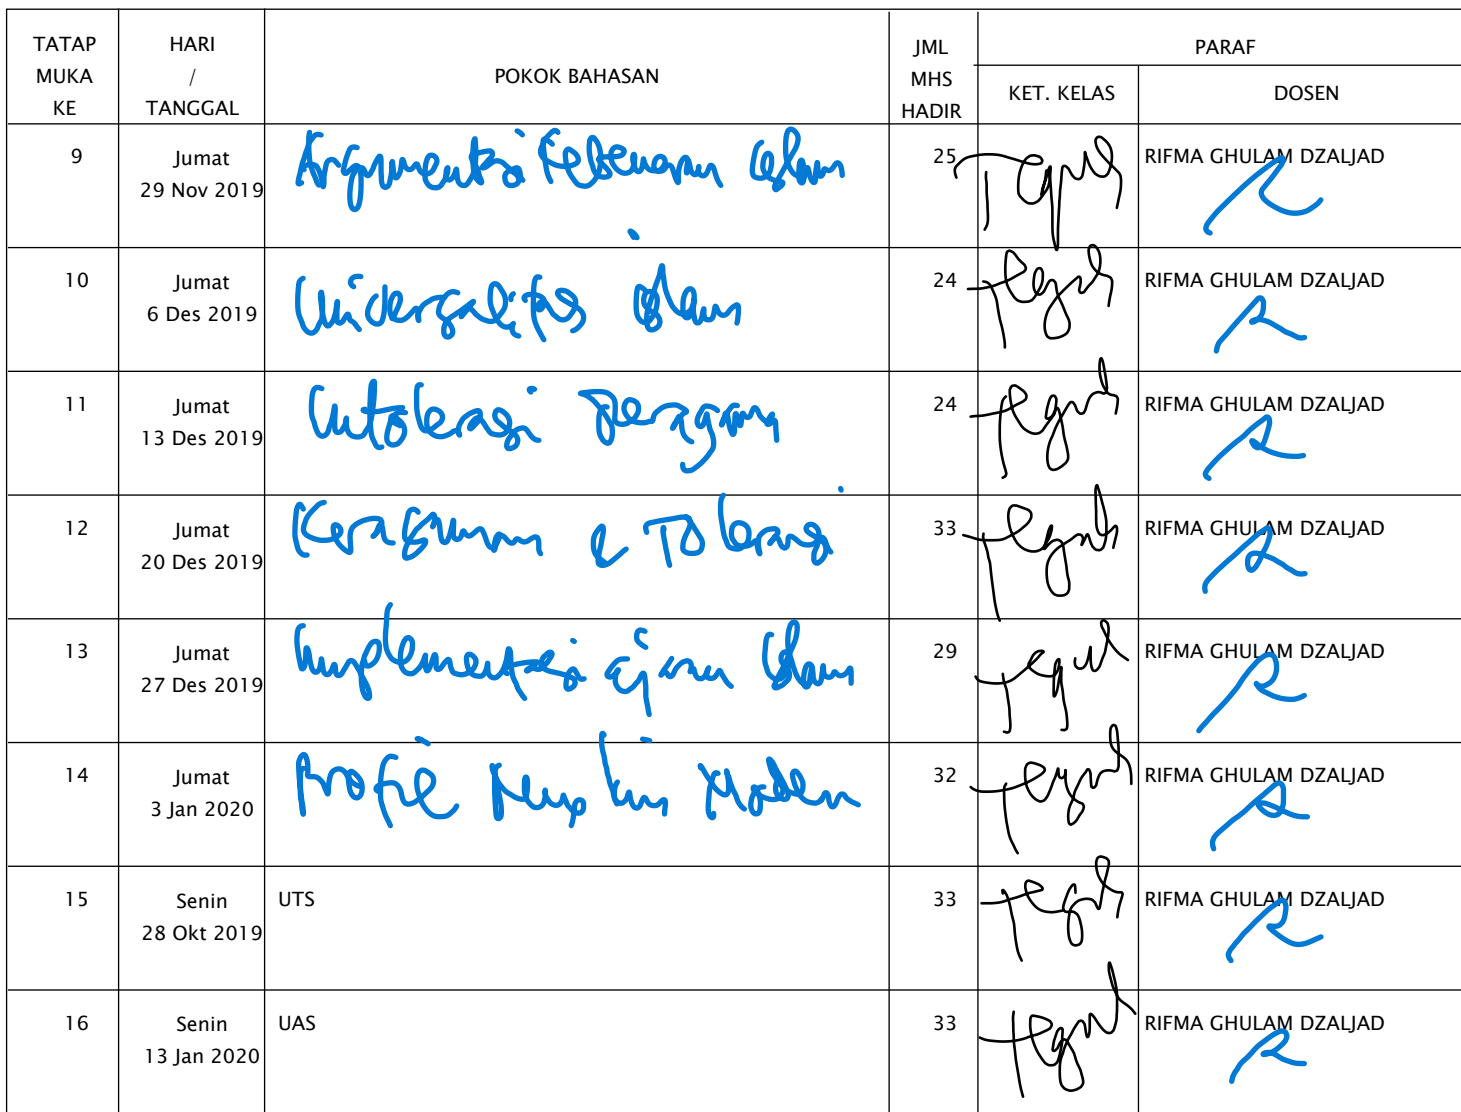 TATAP MUKA KE
HARI / TANGGAL
POKOK BAHASAN
JML MHS HADIR
PARAF
KET. KELAS
DOSEN
9
Jumat
29 Nov 2019
Argumentasi Kebenaran Islam
25
Teguh
RIFMA GHULAM DZALJAD
10
Jumat
6 Des 2019
Universalitas Islam
24
Teguh
RIFMA GHULAM DZALJAD
11
Jumat
13 Des 2019
Intoleransi Beragama
24
Teguh
RIFMA GHULAM DZALJAD
12
Jumat
20 Des 2019
Keragaman & Toleransi
33
Teguh
RIFMA GHULAM DZALJAD
13
Jumat
27 Des 2019
Implementasi ajaran Islam
29
Teguh
RIFMA GHULAM DZALJAD
14
Jumat
3 Jan 2020
Profil Muslim Moderen
32
Teguh
RIFMA GHULAM DZALJAD
15
Senin
28 Okt 2019
UTS
33
Teguh
RIFMA GHULAM DZALJAD
16
Senin
13 Jan 2020
UAS
33
Teguh
RIFMA GHULAM DZALJAD